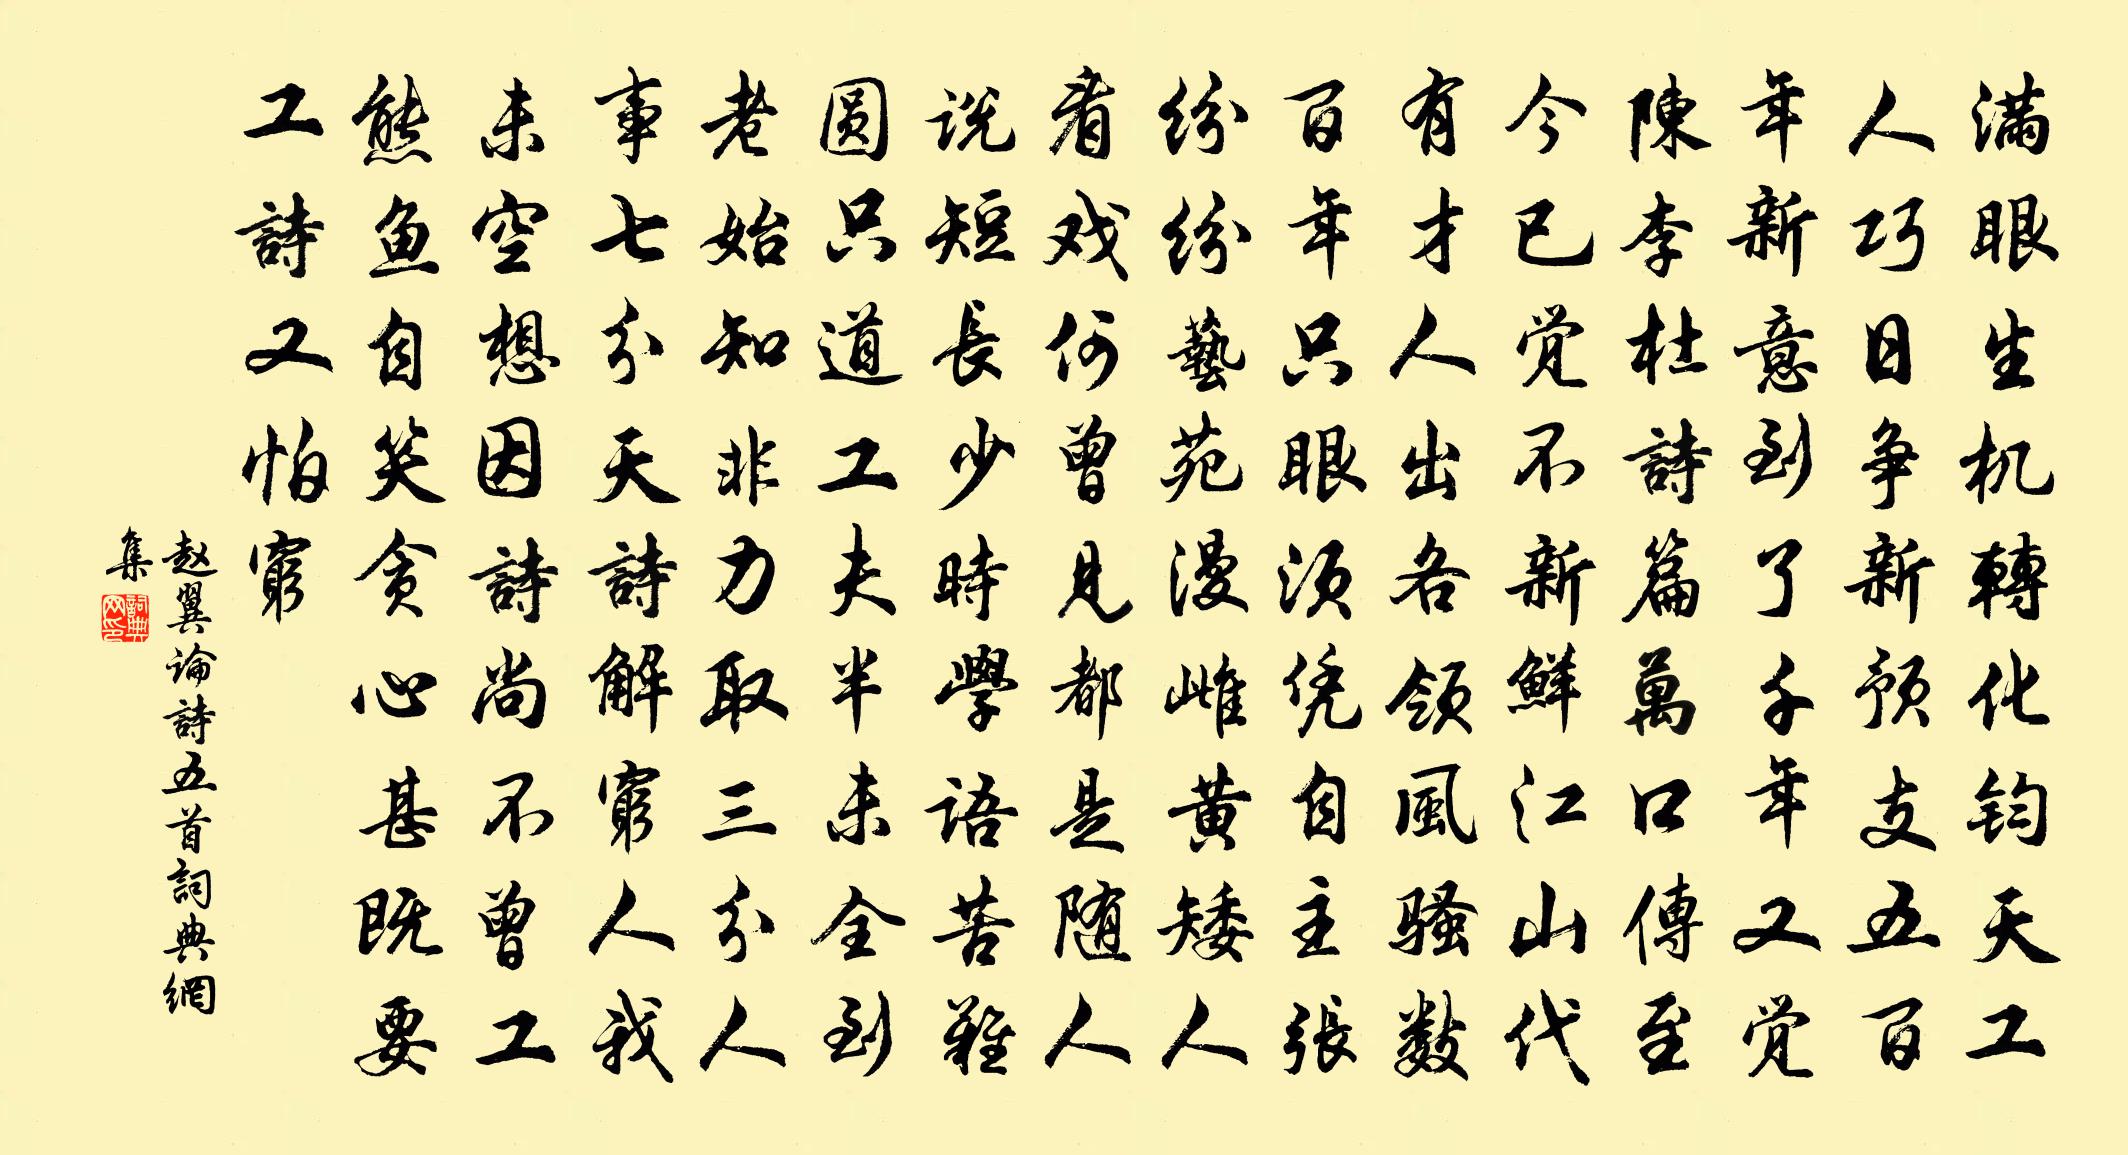 满眼生机轉化钧天工
人巧日争新预支五百
年新意到了千年又觉
陳李杜詩篇萬口傳至
今已觉不新鮮江山代
有才人出各领風骚数
百年只眼须凭自主張
纷纷藝苑漫雌黄矮人
看戏何曾見都是随人
说短長少時學語苦難
圆只道工夫半未全到
老始知非力取三分人
事七分天詩解窮人我
未空想因詩尚不曾工
熊鱼自笑贪心甚既要
工詩又怕窮
赵翼論詩五首詞典網
集
詞典网印